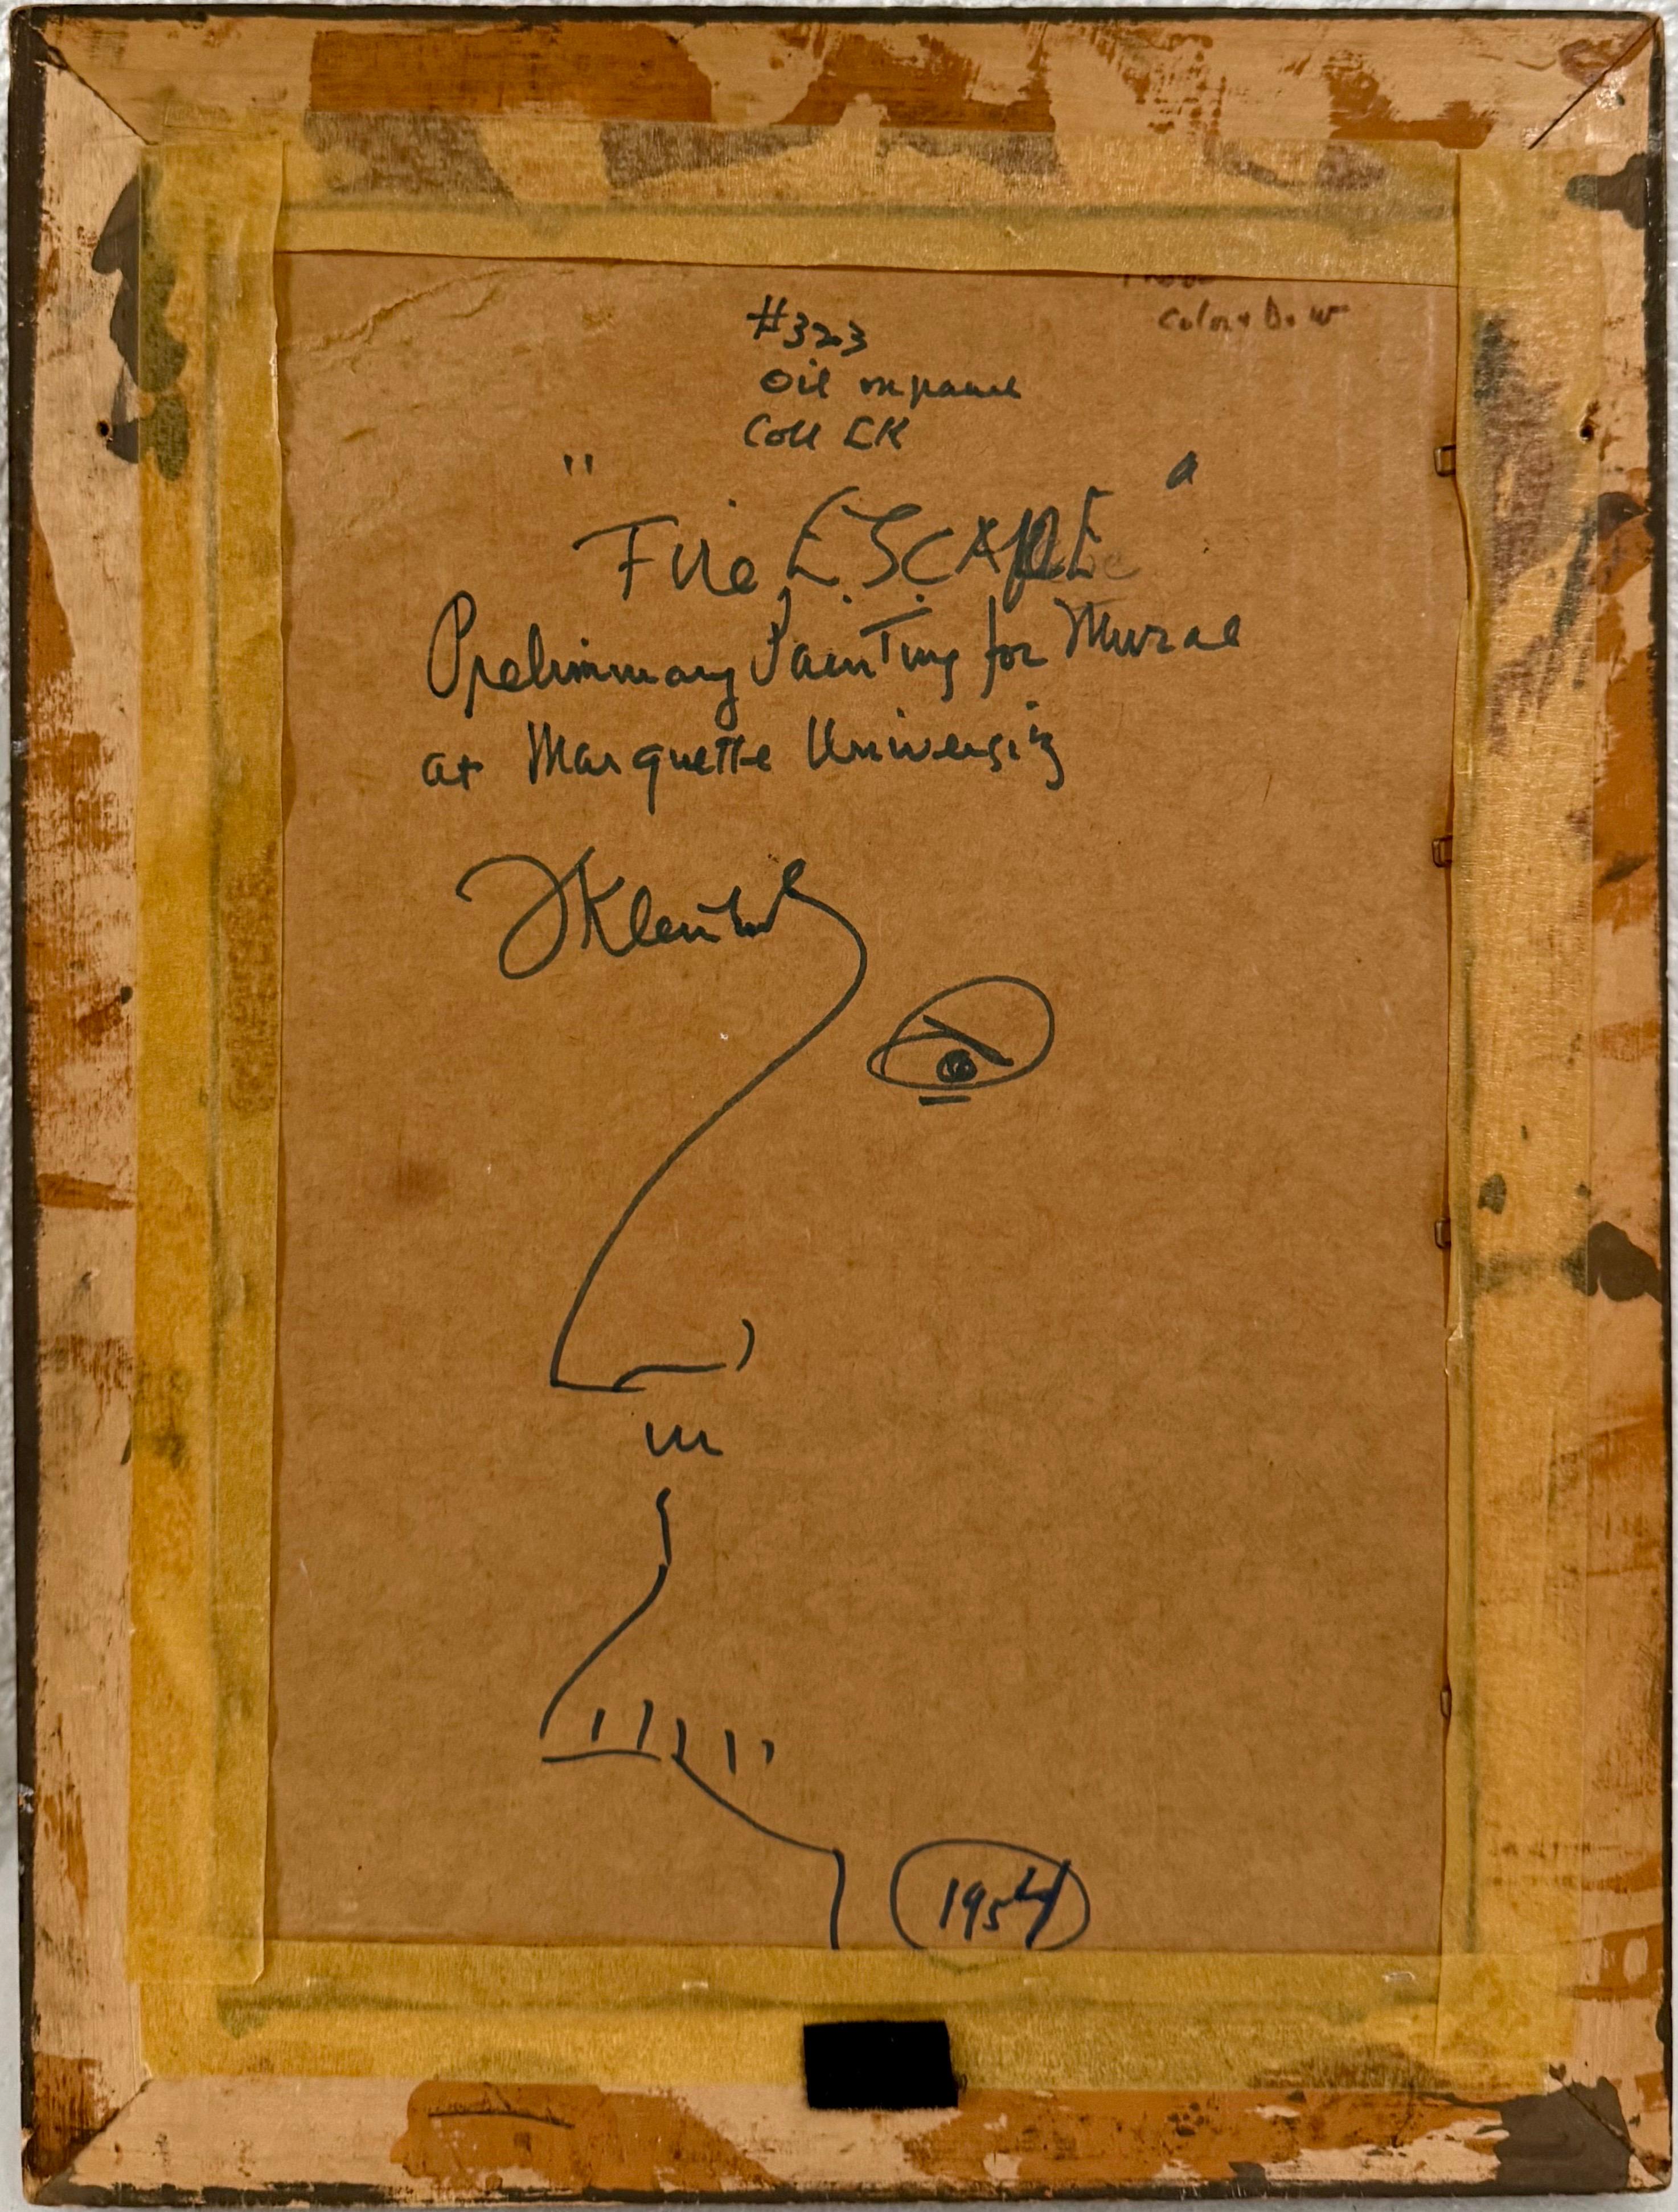 Color & B. W
#323
Oil on panel
Coll LK
" Fire ESCAPE "
Preliminary Painting for Mural
at Marquette University
1954